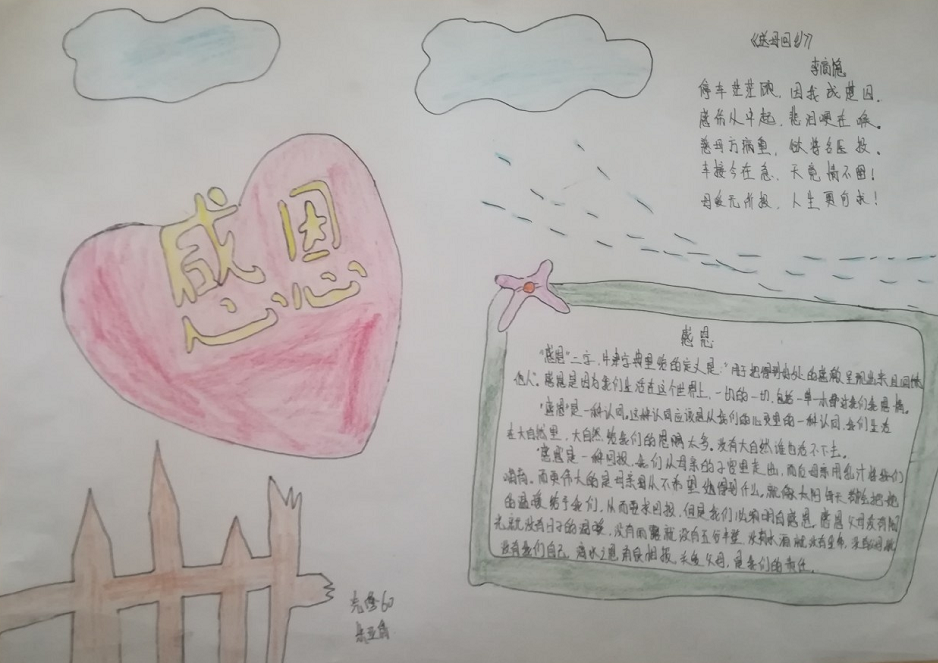 感恩
《感母回》
李商隐
停车茫茫顾,因我成楚囚。
感伤从中起,悲泪哽在喉。
慈母方病重,欲将名医投。
车接今在急,天竟情不留!
母爱无所报,人生更何求!
感恩
“感恩”二字,牛津字典里给的定义是:“用于把得到好处的感激呈现出来且回馈
他人”。感恩是因为我们生活在这个世界上,一切的一切,包括一草一木都对我们有恩情。
“感恩”是一种认同,这种认同应该是从我们的心灵里的一种认同,我们生活
在大自然里,大自然给我们的恩赐太多。没有大自然谁也活不下去。
“感恩是一种回报,我们从母亲的子宫里走出,而后母亲用乳汁将我们
哺育。而更伟大的是母亲从不希望她得到什么。就像太阳每天都会把她
的温暖给予我们,从不要求回报,但是我们必须明白感恩。感恩父母没有阳
光就没有日子的温暖,没有雨露就没有五谷丰登,没有水源就没有生命,
没有我们自己。滴水之恩涌泉相报,关爱父母,是我们的责任。